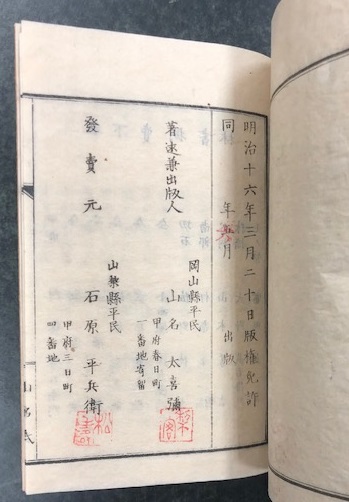 明治十六年三月二十日版權免許
同 年 月 出版
著述兼出版人
岡山縣平民
山名太喜彌
甲府春日町
一番地寄留
發賣元
山梨縣平民
石原平兵衛
甲府三日町
四番地